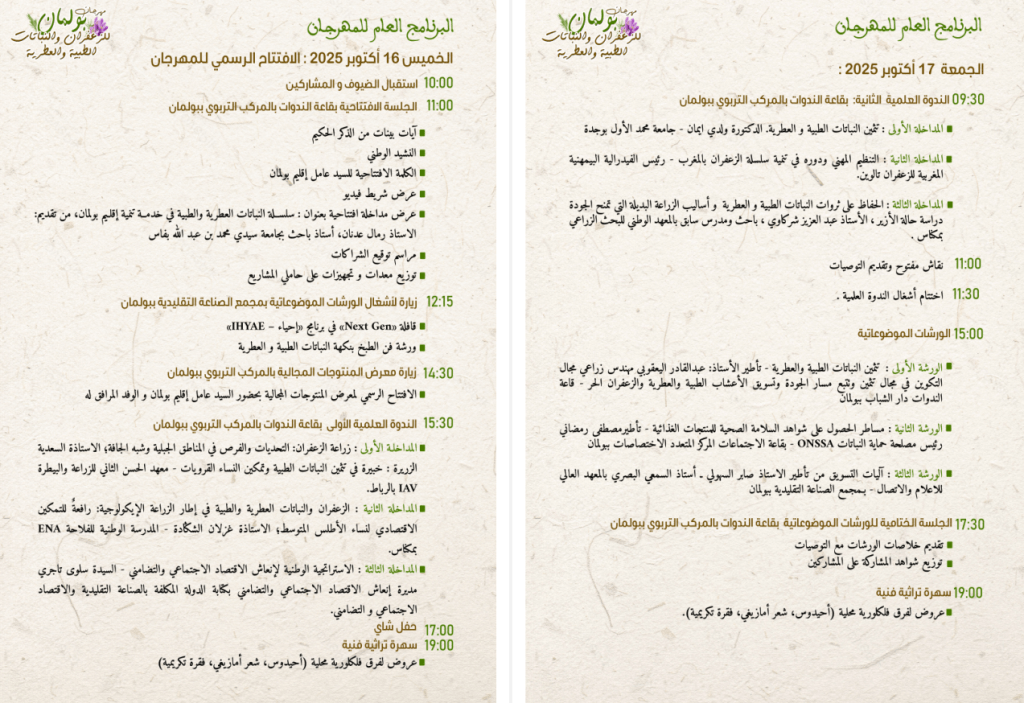 البرنامج العام للمهرجان
مهرجان
بولمان
للزعفران والنباتات
الطبية والعطرية
الخميس 16 أكتوبر 2025 : الافتتاح الرسمي للمهرجان
10:00 استقبال الضيوف و المشاركين
11:00 الجلسة الافتتاحية بقاعة الندوات بالمركب التربوي ببولمان
آيات بينات من الذكر الحكيم
النشيد الوطني
الكلمة الافتتاحية للسيد عامل إقليم بولمان
عرض شريط فيديو
عرض مداخلة افتتاحية بعنوان : سلسلة النباتات العطرية والطبية في خدمة تنمية إقليم بولمان، من تقديم:
الاستاذ رمال عدنان، أستاذ باحث بجامعة سيدي محمد بن عبد الله بفاس
مراسم توقيع الشراكات
توزيع معدات و تجهيزات على حاملي المشاريع
12:15 زيارة لأشغال الورشات الموضوعاتية بمجمع الصناعة التقليدية ببولمان
قافلة «Next Gen» في برنامج «إحياء – IHYAE»
ورشة فن الطبخ بنكهة النباتات الطبية و العطرية
14:30 زيارة معرض المنتوجات المجالية بالمركب التربوي ببولمان
الافتتاح الرسمي لمعرض المنتوجات المجالية بحضور السيد عامل إقليم بولمان و الوفد المرافق له
15:30 الندوة العلمية الأولى بقاعة الندوات بالمركب التربوي ببولمان
المداخلة الأولى : زراعة الزعفران: التحديات والفرص في المناطق الجبلية وشبه الجافة؛ الاستاذة السعدية
الزريرة : خبيرة في تثمين النباتات الطبية وتمكين النساء القرويات - معهد الحسن الثاني للزراعة والبيطرة
IAV بالرباط.
المداخلة الثانية : الزعفران والنباتات العطرية والطبية في إطار الزراعة الإيكولوجية: رافعةٌ للتمكين
الاقتصادي لنساء الأطلس المتوسط؛ الاستاذة غزلان الشكنادة - المدرسة الوطنية للفلاحة ENA
بمكناس.
المداخلة الثالثة : الاستراتجية الوطنية لإنعاش الاقتصاد الاجتماعي والتضامني - السيدة سلوى تاجري
مديرة إنعاش الاقتصاد الاجتماعي والتضامني بكتابة الدولة المكلفة بالصناعة التقليدية والاقتصاد
الاجتماعي و التضامني.
17:00 حفل شاي
19:00 سهرة تراثية فنية
عروض لفرق فلكلورية محلية (أحيدوس، شعر أمازيغي، فقرة تكريمية)
البرنامج العام للمهرجان
مهرجان
بولمان
للزعفران والنباتات
الطبية والعطرية
الجمعة 17 أكتوبر 2025 :
09:30 الندوة العلمية الثانية: بقاعة الندوات بالمركب التربوي ببولمان
المداخلة الأولى : تثمين النباتات الطبية و العطرية. الدكتورة ولدي ايمان - جامعة محمد الأول بوجدة
المداخلة الثانية : التنظيم المهني ودوره في تنمية سلسلة الزعفران بالمغرب - رئيس الفيدرالية البيمهنية
المغربية للزعفران تالوين.
المداخلة الثالثة : الحفاظ على ثروات النباتات الطبية و العطرية و أساليب الزراعة البديلة التي تمنح الجودة
دراسة حالة الأزير ، الأستاذ عبد العزيز شركاوي ، باحث ومدرس سابق بالمعهد الوطني للبحث الزراعي
بمكناس .
11:00 نقاش مفتوح وتقديم التوصيات
11:30 اختتام أشغال الندوة العلمية .
15:00 الورشات الموضوعاتية
الورشة الأولى : تثمين النباتات الطبية والعطرية - تأطير الأستاذ: عبدالقادر اليعقوبي مهندس زراعي مجال
التكوين في مجال تثمين وتتبع مسار الجودة وتسويق الأعشاب الطبية والعطرية والزعفران الحر - قاعة
الندوات دار الشباب ببولمان
الورشة الثانية : مساطر الحصول على شواهد السلامة الصحية للمنتجات الغذائية - تأطيرمصطفى رمضاني
رئيس مصلحة حماية النباتات ONSSA - بقاعة الاجتماعات المركز المتعدد الاختصاصات ببولمان
الورشة الثالثة : آليات التسويق من تأطير الاستاذ صابر السهولي - أستاذ السمعي البصري بالمعهد العالي
للاعلام والاتصال - بمجمع الصناعة التقليدية ببولمان
17:30 الجلسة الختامية للورشات الموضوعاتية بقاعة الندوات بالمركب التربوي ببولمان
تقديم خلاصات الورشات مع التوصيات
توزيع شواهد المشاركة على المشاركين
19:00 سهرة تراثية فنية
عروض لفرق فلكلورية محلية (أحيدوس، شعر أمازيغي، فقرة تكريمية).